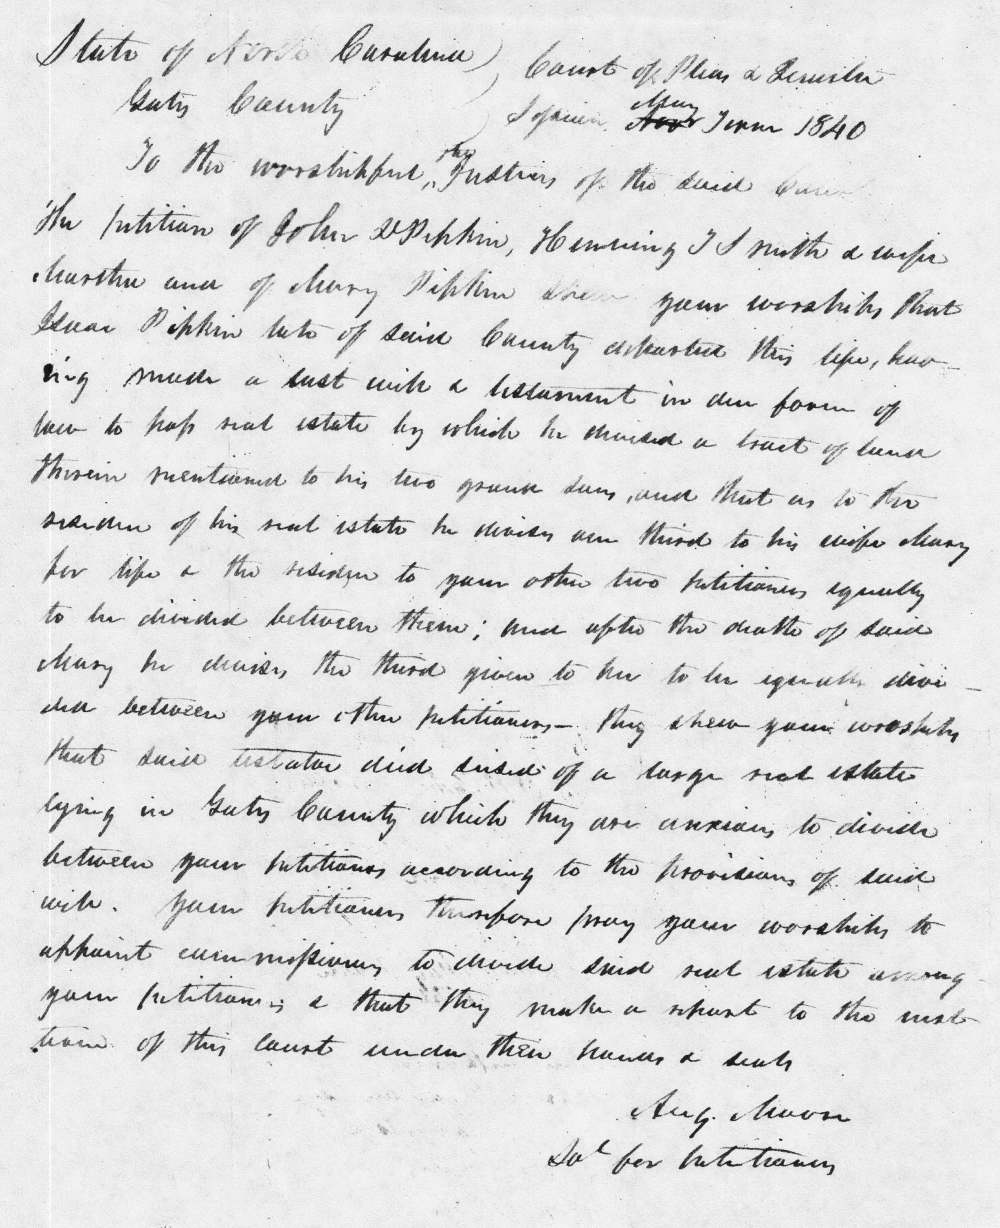 State of North Carolina ) Court of Pleas & Quarter
Gates County ) Sessions May Nov Term 1840
To the worshipful the Justices of the said Court
The petition of John D Pipkin, Henning T Smith & wife
Martha and of Mary Pipkin shew your worships that
Isaac Pipkin late of said County departed this life, hav-
ing made a last will & testament in due form of
law to pass real estate by which he devised a tract of land
therein mentioned to his two grand sons, and that as to the
residue of his real estate he devises one third to his wife Mary
for life & the residue to your other two petitioners equally
to be divided between them; and after the death of said
Mary he devises the third given to her to be equally divi-
ded between your other petitioners - they shew your worships
that said testator died seised of a large real estate
lying in Gates County which they are anxious to divide
between your petitioners according to the provisions of said
will. Your petitioners therefore pray your worships to
appoint commissioners to divide said real estate among
your petitioners & that they make a report to the next
term of this Court under their hands & seals
Aug. Moore
Sol for petitioners